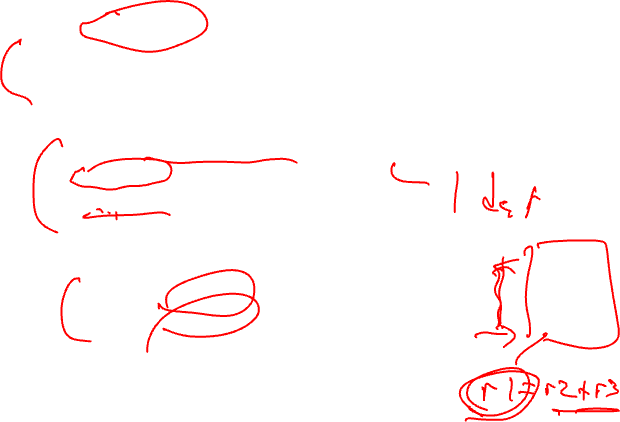 1 def
r1 = r2+r3